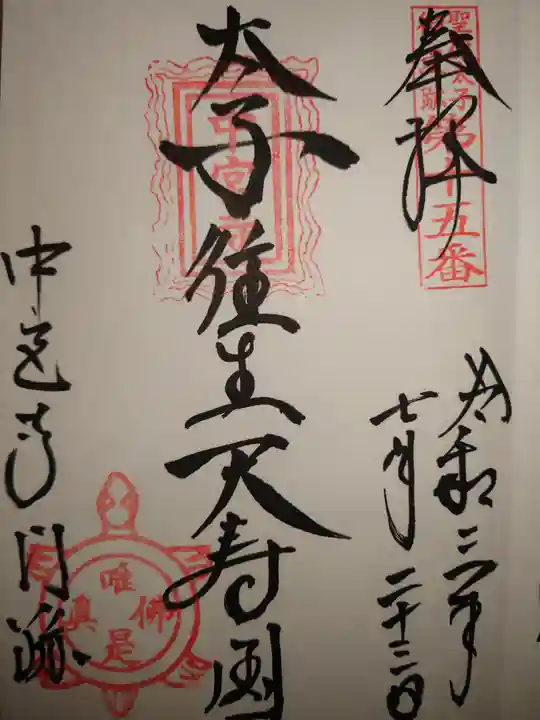 奉拝
聖徳太子
御遺跡
第十五番
令和三年
七月二十三日
太子往生天寿国
中宮寺
中宮寺門跡
唯佛是真